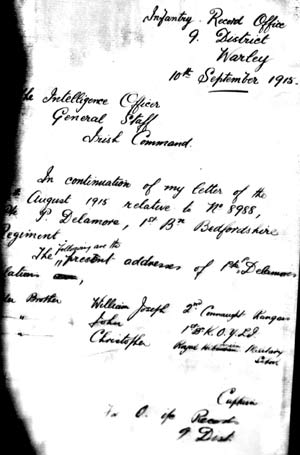 Infantry Record Office
9. District
Warley
10th September 1915.
The Intelligence Officer
General Staff
Irish Command.
In continuation of my letter of the
August 1915 relative to No 8988,
P. Delamore, 1st Bn Bedfordshire
Regiment
The following are the present addresses of Pte Delamore
Brother William Joseph 2nd Connaught Rangers
" John 1st B. K.O.Y.L.I.
" Christopher Royal Military
Captain
O. i/c Records
9 Dist.